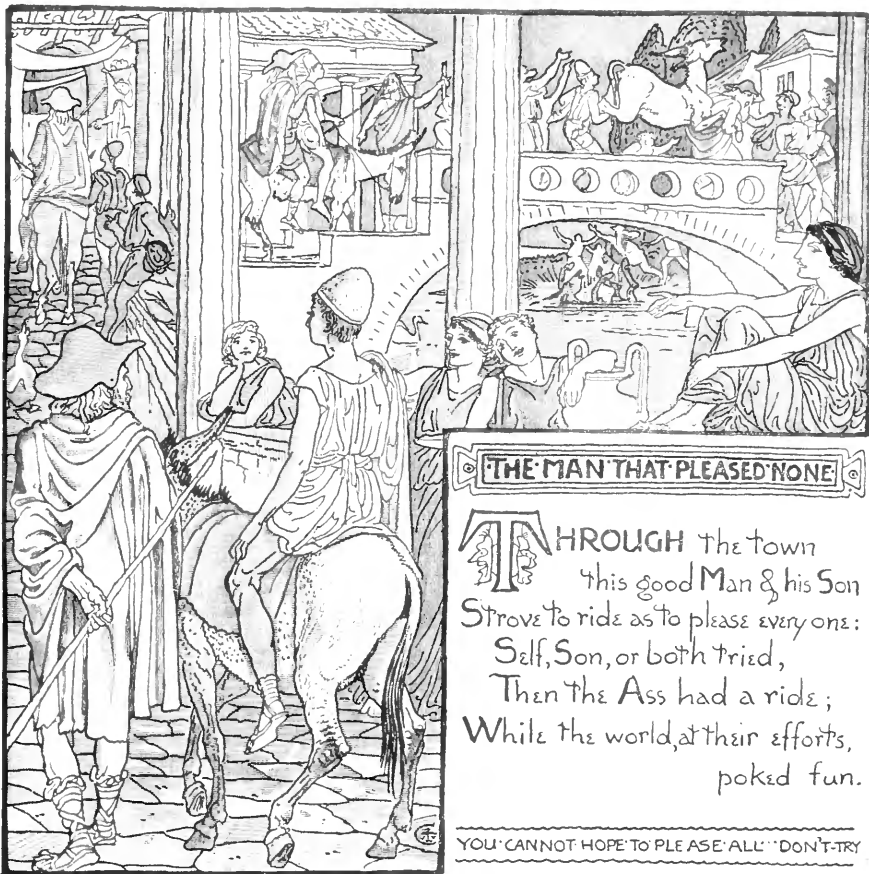 THE·MAN·THAT·PLEASED·NONE
THROUGH the town
this good Man & his Son
Strove to ride as to please everyone:
Self, Son, or both tried,
Then the Ass had a ride;
While the world, at their efforts,
poked fun.
YOU·CANNOT·HOPE·TO·PLEASE·ALL··DON'T·TRY